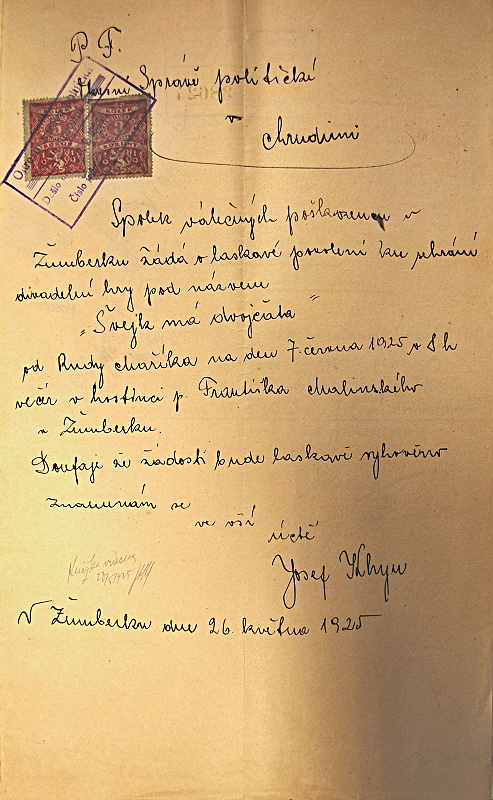 P. T.
Okresní Správě politické
v
Chrudimi
Spolek válečných poškozenců v
Žumberku žádá o laskavé povolení ku sehrání
divadelní hry pod názvem
„Švejk má dvojčata"
od Rudy Mařika na den 7. června 1925 v 8 h
večer v hostinci p. Františka Malinského
v Žumberku.
Doufaje že žádosti bude laskavě vyhověno
znamenám se
ve vší
úctě
Josef
V Žumberku dne 26. května 1925